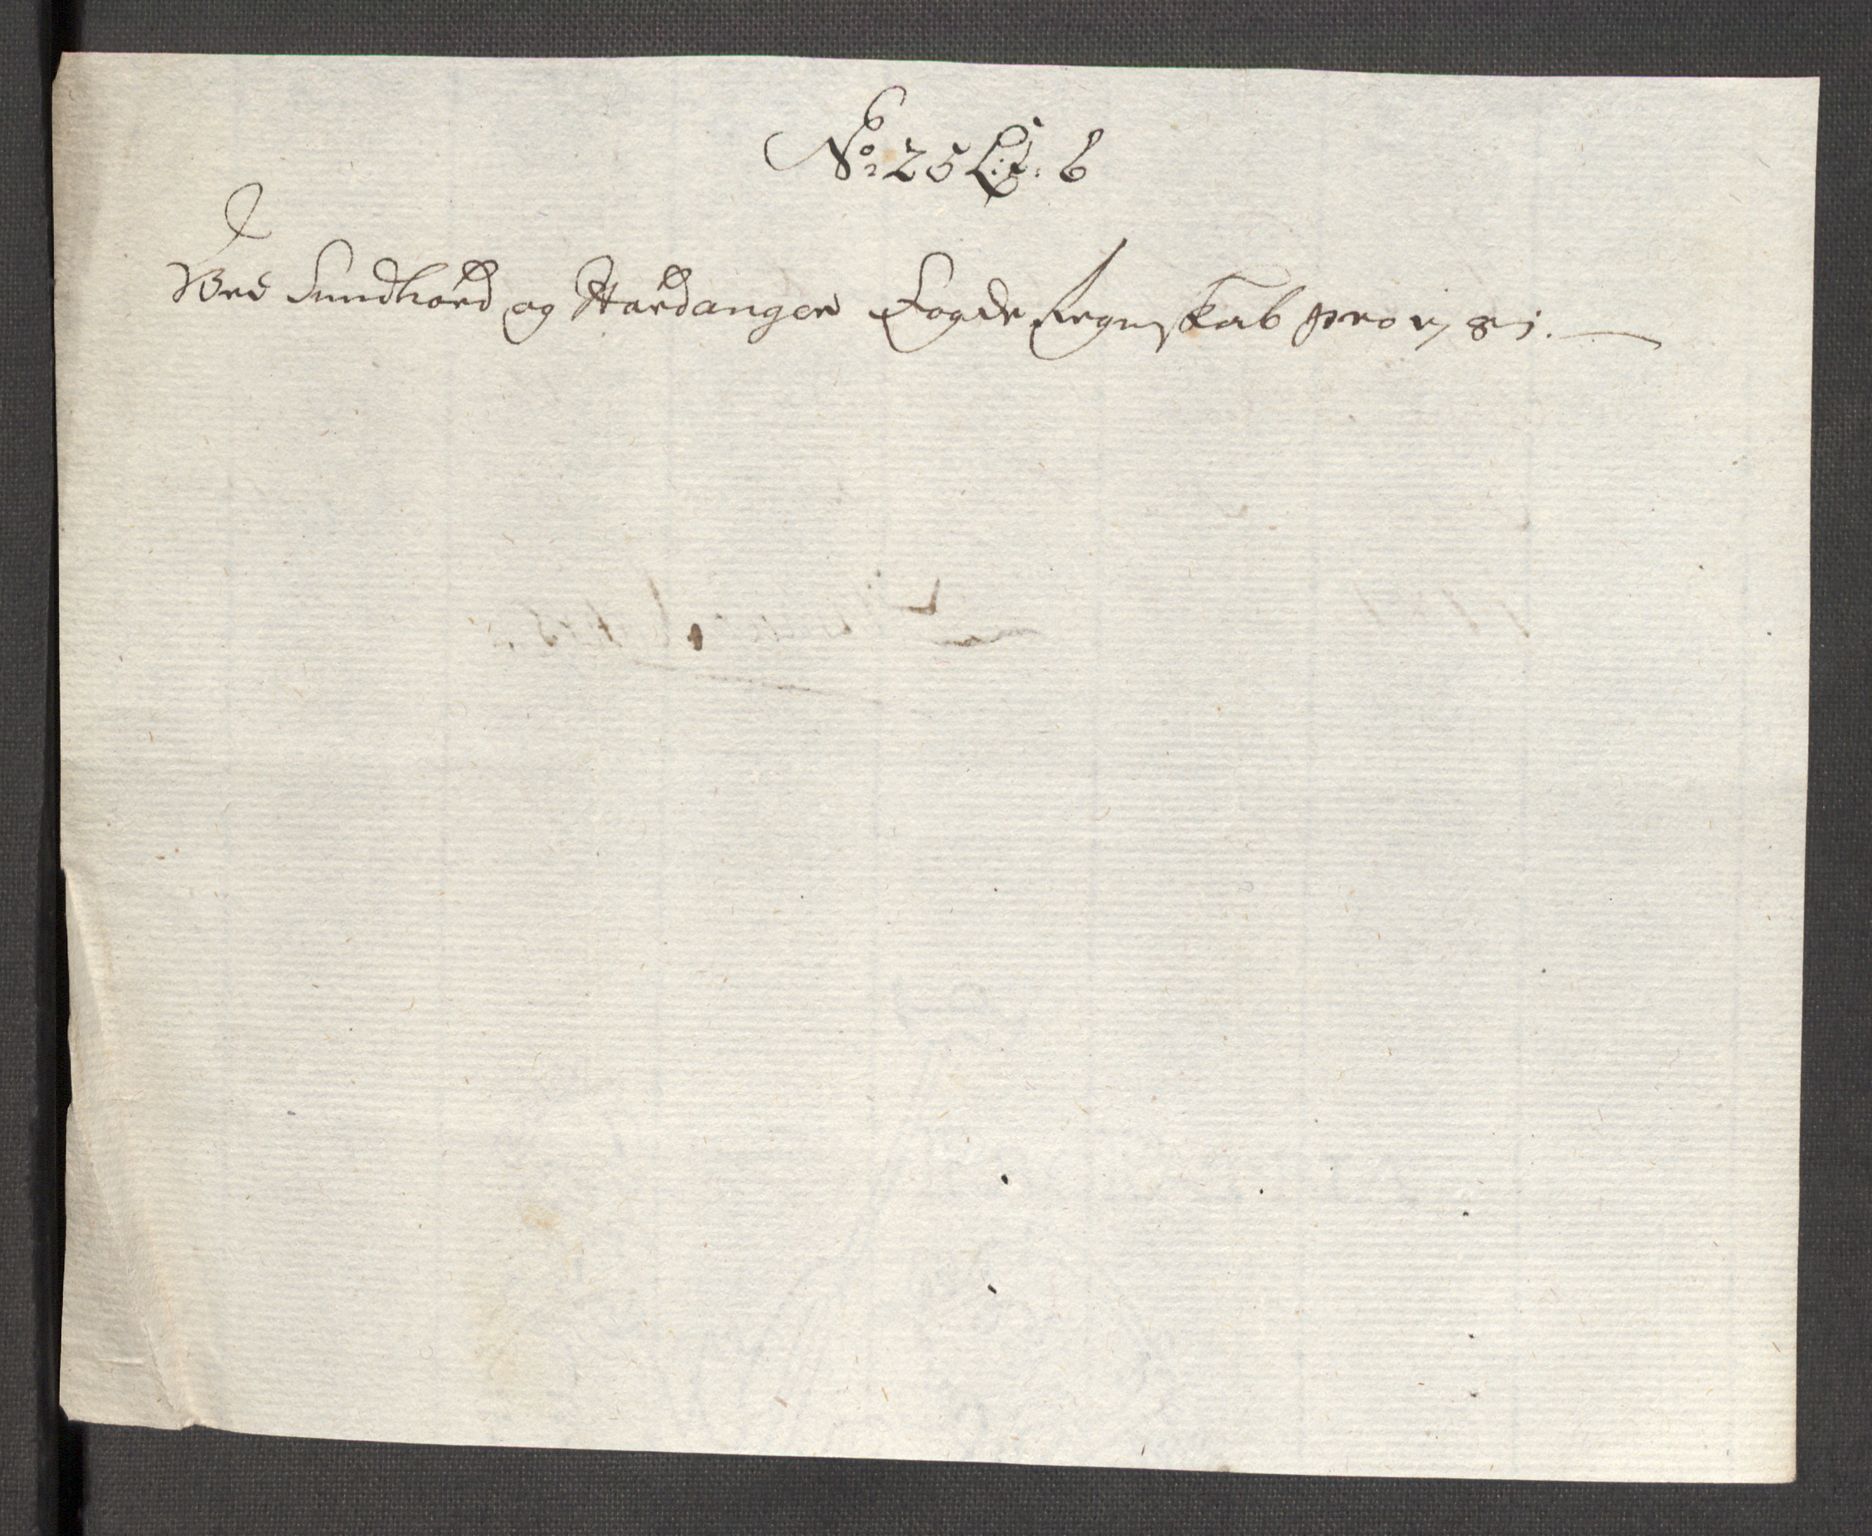 No: 25 Lit: b
Ved Sundhord og Hardanger Fogde Regnskab pro 1781.